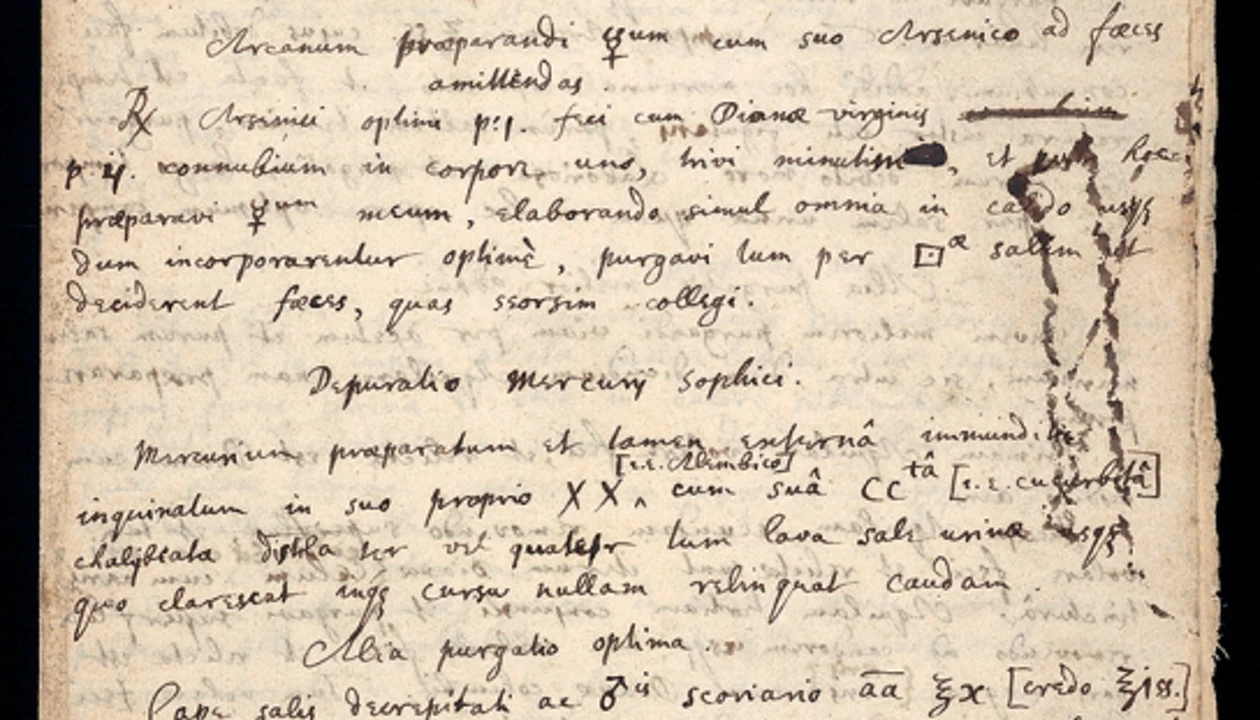 Arcanum præparandi ☿ium cum suo Arsenico ad fæces
amittendas
℞ Arsenici optimi p:j. feci cum Dianæ virginis
p. ij. connubium in corpore uno, trivi et
præparavi ☿ium meum, elaborando simul omnia in calido usqꝫ
dum incorporarentur optimè, purgavi tum per salem ut
deciderent fæces, quas seorsim collegi.
Depuratio Mercurij Sophici.
Mercurium præparatum et tamen externâ
[i.e. Alembico]
inquinatum in suo proprio XX ‸ cum suâ CCtâ [i.e. cucurbitâ]
chalybeata distilla ter vel quater tum lava sale urinæ usqꝫ
quo clarescat inqꝫ cursu nullam relinquat caudam.
Alia purgatio optima.
Cape salis decrepitati ac ♂is scoriario āā ℥x [credo ℥jss.]